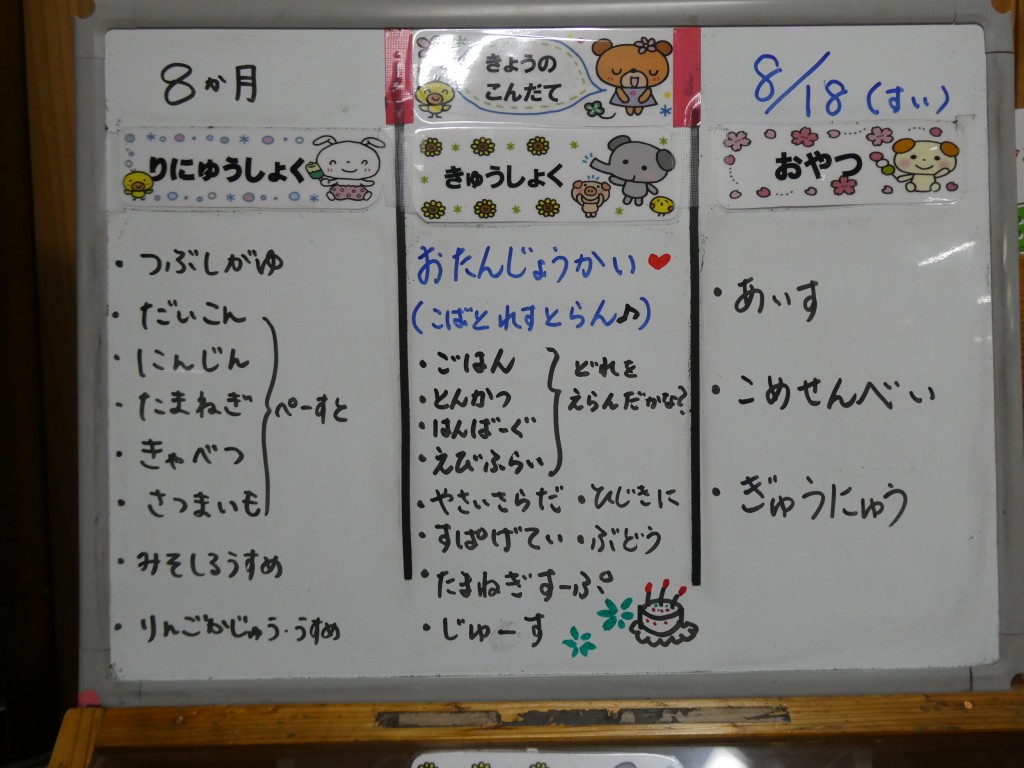 きょうの
こんだて
8か月
りにゅうしょく
・つぶしがゆ
・だいこん
・にんじん
・たまねぎ
・きゃべつ
・さつまいも
ぺーすと
・みそしるうすめ
・りんごかじゅう・うすめ
きゅうしょく
おたんじょうかい♥
(こばとれすとらん♪)
・ごはん
・とんかつ
・はんばーぐ
・えびふらい
どれを
えらんだかな?
・やさいさらだ ・ひじきに
・すぱげてぃ ・ぶどう
・たまねぎすーぷ
・じゅーす
8/18(すい)
おやつ
・あいす
・こめせんべい
・ぎゅうにゅう